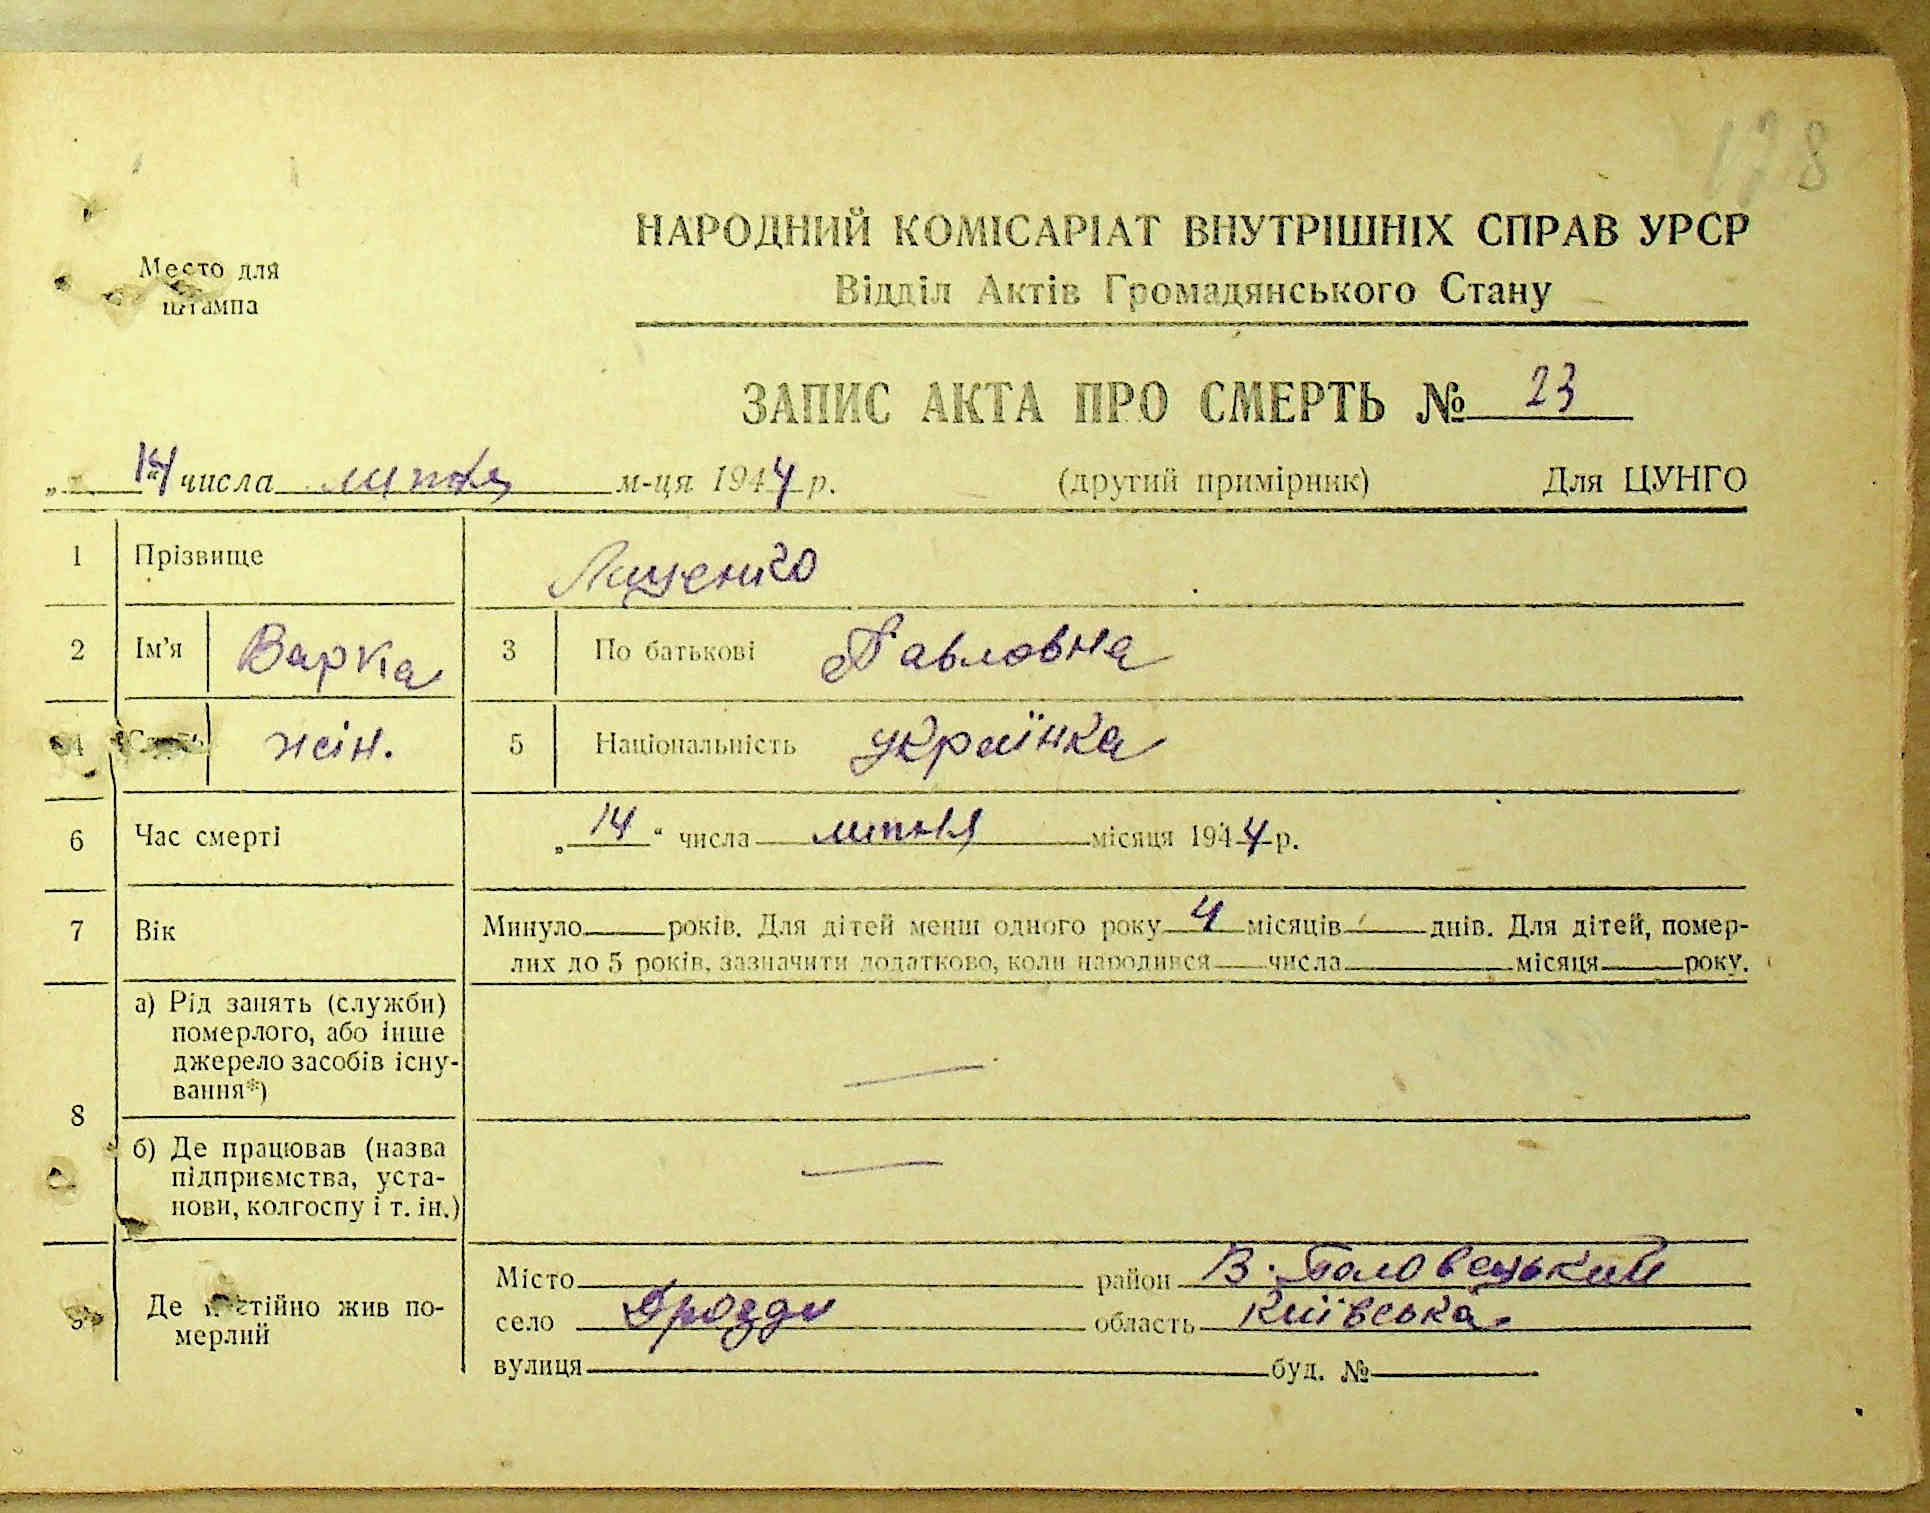 178
НАРОДНИЙ КОМІСАРІАТ ВНУТРІШНІХ СПРАВ УРСР
Место для
штампа
Відділ Актів Громадянського Стану
ЗАПИС АКТА ПРО СМЕРТЬ № 23
„14“ числа липня м-ця 1944 р. (другий примірник) Для ЦУНГО
1 Прізвище Ященко
2 Ім'я Варка 3 По батькові Павловна
4 Стать жін. 5 Національність українка
6 Час смерті „14“ числа липня місяця 1944 р.
7 Вік Минуло років. Для дітей менш одного року 4 місяців днів. Для дітей, помер-
лих до 5 років, зазначити додатково, коли народився числа місяця року.
8 а) Рід занять (служби)
померлого, або інше
джерело засобів існу-
вання*) —
б) Де працював (назва
підприємства, уста-
нови, колгоспу і т. ін.) —
9 Де постійно жив по-
мерлий
Місто район В. Половецький
село Дрозди область Київська
вулиця буд. №